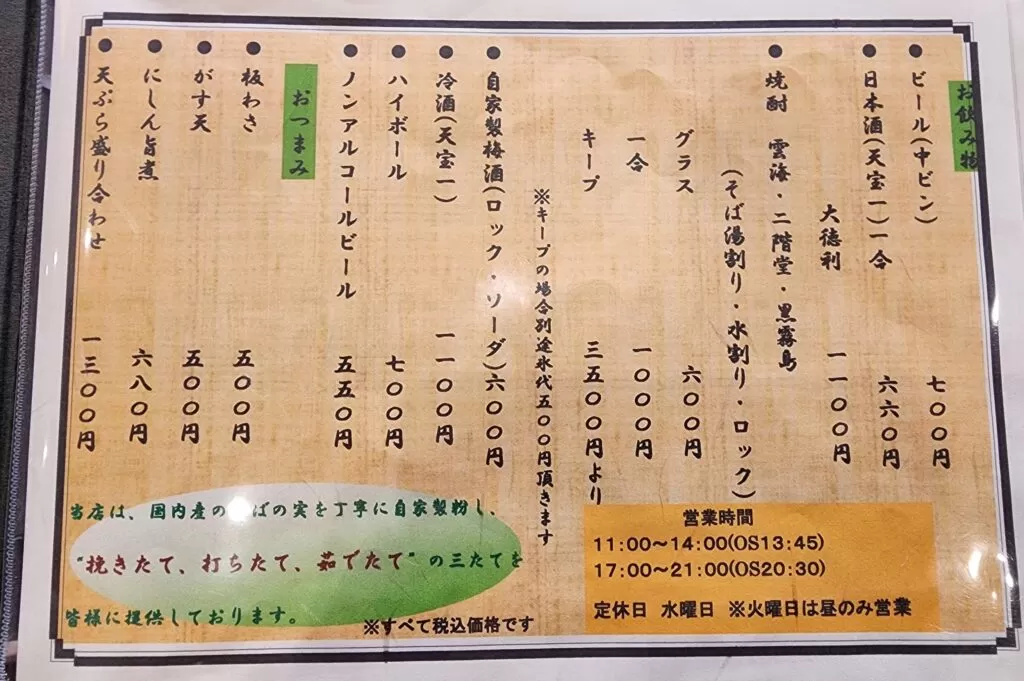 お飲み物
● ビール(中ビン) 七〇〇円
● 日本酒(天宝一)一合 六六〇円
大徳利 一一〇〇円
● 焼酎 雲海・二階堂・黒霧島
(そば湯割り・水割り・ロック)
グラス 六〇〇円
一合 一〇〇〇円
キープ 三五〇〇円より
※キープの場合別途氷代五〇〇円頂きます
● 自家製梅酒(ロック・ソーダ)六〇〇円
● 冷酒(天宝一) 一一〇〇円
● ハイボール 七〇〇円
● ノンアルコールビール 五五〇円
おつまみ
● 板わさ 五〇〇円
● がす天 五〇〇円
● にしん旨煮 六八〇円
● 天ぷら盛り合わせ 一三〇〇円
当店は、国内産のそばの実を丁寧に自家製粉し、
"挽きたて、打ちたて、茹でたて"の三たてを
皆様に提供しております。
※すべて税込価格です
営業時間
11:00～14:00(OS13:45)
17:00～21:00(OS20:30)
定休日 水曜日 ※火曜日は昼のみ営業